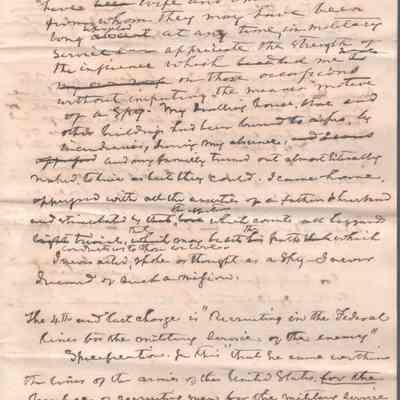 have been wife and
from whom they may have been
long absent at any time in military
service can appreciate the strength of
the influence which me to
on those occasions
without imputing the meaner motive
of a Spy. My dwelling house, store and
other buildings had been burned to ashes, by
incendiaries, during my absence, and
and my family turned out almost literally
naked to live as best they could. I came home,
oppressed with all the anxieties of a father & husband
and stimulated by that love which counts all hazzards
trivial, which may beset the path which
conducts to those we love.
I never acted, spoke or thought as a Spy – I never
dreamed of such a mission.
The 4th and last charge is "Recruiting in the Federal
lines for the military service of the enemy"
Specification. In this "that he came within
the lines of the armies of the United States, for the
purpose of recruiting men for the military service